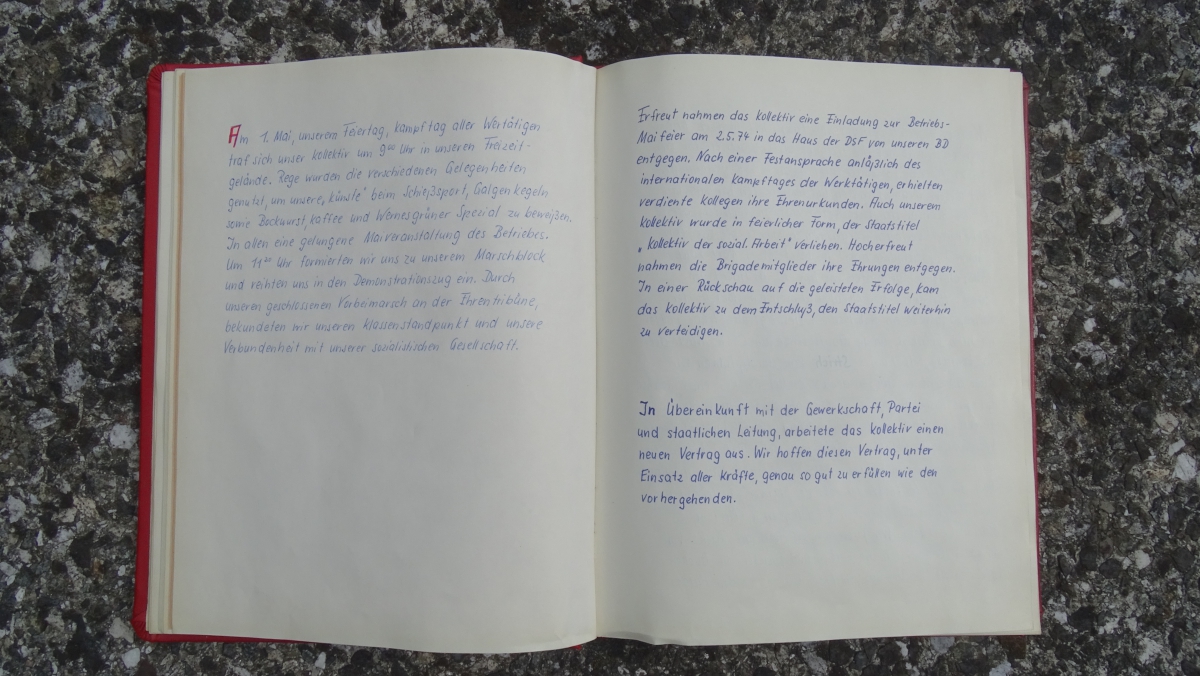 Am 1. Mai, unserem Feiertag, Kampftag aller Wertätigen
traf sich unser Kollektiv um 9⁰⁰ Uhr in unseren Freizeit-
gelände. Rege wurden die verschiedenen Gelegenheiten
genutzt, um unsere „Künste" beim Schießsport, Galgenkegeln
sowie Bockwurst, Kaffee und Wernesgrüner Spezial zu beweißen.
In allen eine gelungene Maiveranstaltung des Betriebes.
Um 11 Uhr formierten wir uns zu unserem Marschblock
und reihten uns in den Demonstrationszug ein. Durch
unseren geschlossenen Vorbeimarsch an der Ehrentribüne,
bekundeten wir unseren Klassenstandpunkt und unsere
Verbundenheit mit unserer sozialistischen Gesellschaft.
Erfreut nahmen das Kollektiv eine Einladung zur Betriebs-
Maifeier am 2.5.74 in das Haus der DSF von unseren BD
entgegen. Nach einer Festansprache anläßlich des
internationalen Kampftages der Werktätigen, erhielten
verdiente Kollegen ihre Ehrenurkunden. Auch unserem
Kollektiv wurde in feierlicher Form, der Staatstitel
„Kollektiv der sozial. Arbeit" verliehen. Hocherfreut
nahmen die Brigademitglieder ihre Ehrungen entgegen.
In einer Rückschau auf die geleisteten Erfolge, kam
das Kollektiv zu dem Entschluß, den Staatstitel weiterhin
zu verteidigen.
In Übereinkunft mit der Gewerkschaft, Partei
und staatlichen Leitung, arbeitete das Kollektiv einen
neuen Vertrag aus. Wir hoffen diesen Vertrag, unter
Einsatz aller Kräfte, genau so gut zu erfüllen wie den
vorhergehenden.